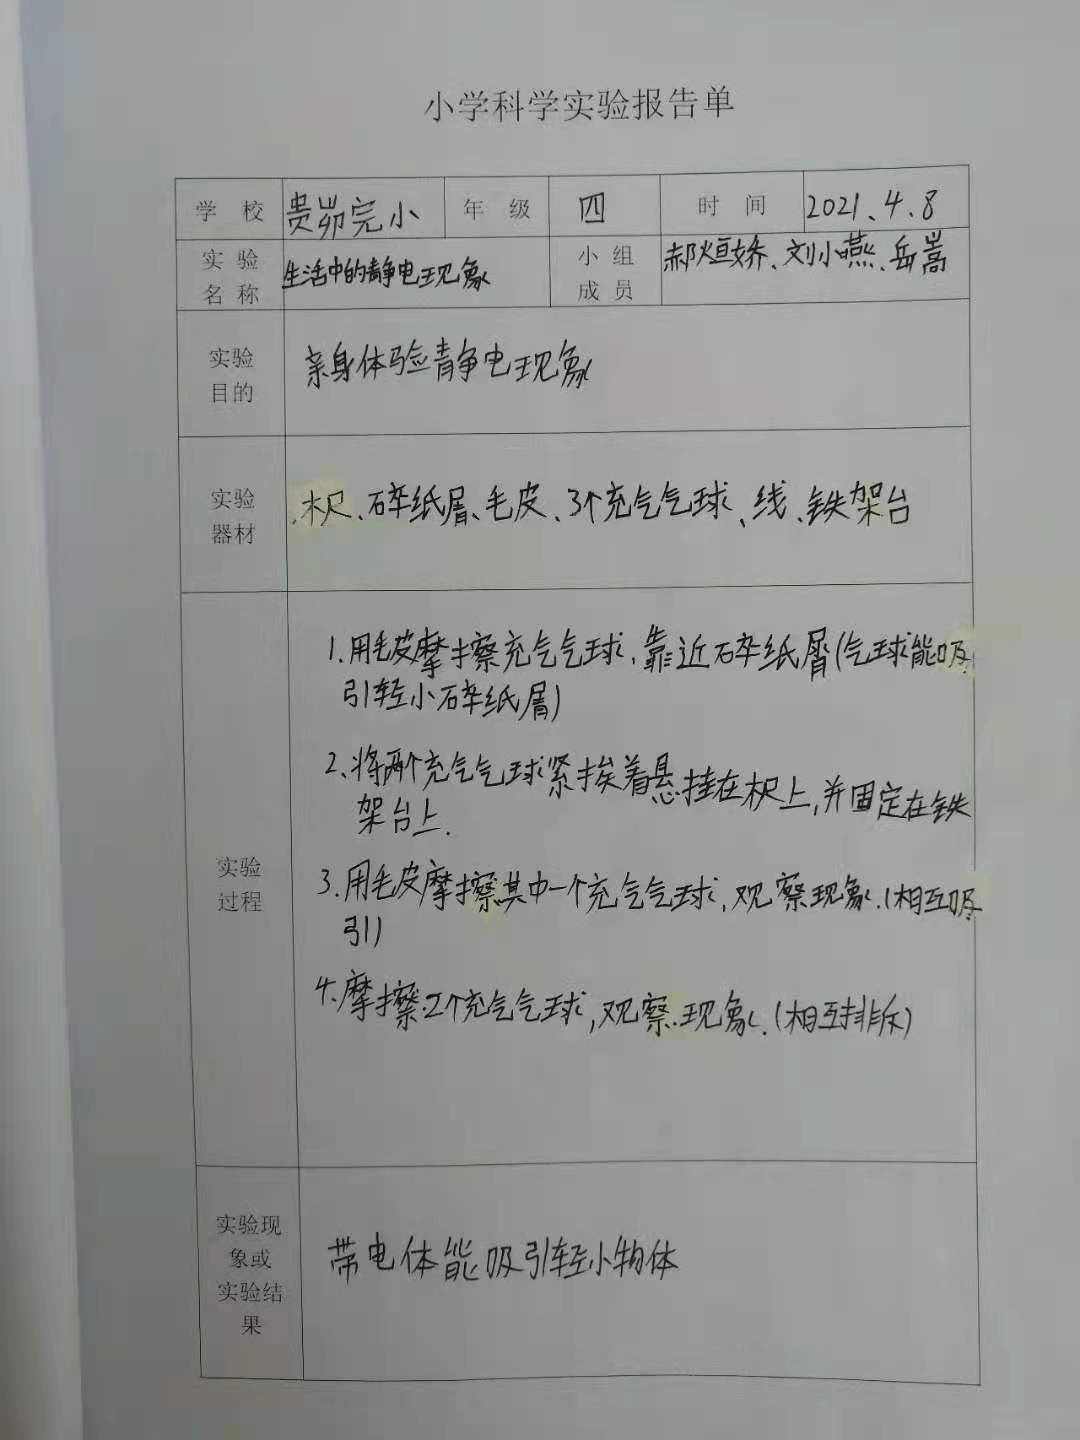 小学科学实验报告单
学 校 贵茆完小 年 级 四 时 间 2021、4、8
实 验 生活中的静电现象 小 组 郝烜娇、刘小燕、岳嵩
名 称 成 员
实验 亲身体验静电现象
目的
实验 、木尺、碎纸屑、毛皮、3个充气气球、线、铁架台
器材
实验
过程
1.用毛皮摩擦充气气球,靠近碎纸屑(气球能吸
引轻小碎纸屑)
2、将两个充气气球紧挨着悬挂在木尺上,并固定在铁
架台上.
3.用毛皮摩擦其中一个充气气球,观察现象.(相互吸
引)
4.摩擦2个充气气球,观察现象.(相互排斥)
实验现
象或
实验结
果
带电体能吸引轻小物体